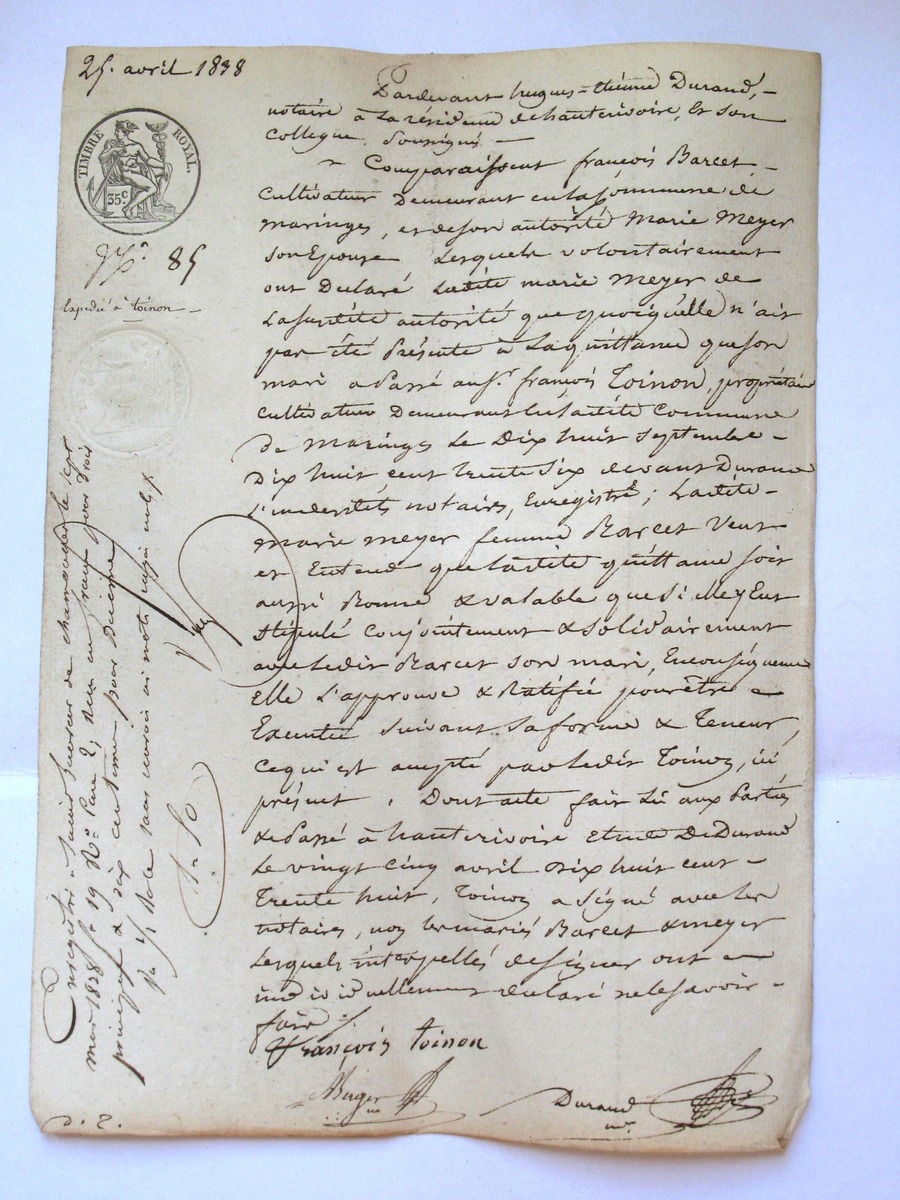 25. avril 1838
TIMBRE ROYAL.
35c
85
Expedié à toinon
Pardevant hugues=etienne Durand,
notaire à la résidence de hauterivoire, et son
collegue soussignés
Comparaissent françois Barcet
cultivateur Demeurant en la commune de
maringes, et de son autorité Marie Meyer
son Epouse Lesquels volontairement
ont Declaré Ladite marie meyer de
La susdite autorité que quoiqu'elle n'ait
pas été Présente à La quittance que son
mari a Passé au sr. françois Toinon, propriétaire
cultivateur Demeurant En ladite commune
de maringes Le Dix huit septembre
Dix huit cent trente six devant Durand
L'un desdits notaires, Enregistré; Ladite
marie meyer femme Barcet Veut
et Entend que Ladite quittance soit
aussi Bonne & valable que si elle y Eut
stipulé conjointement & solidairement
avec Ledit Barcet son mari, En conséquence
Elle L'approuve & Ratifie pour être
Executée suivant sa forme & Teneur,
ce qui est accepté par Ledit Toinon, ici
présent. Dont acte fait Lû aux Parties
& Passé à hauterivoire etude De Durand
Le vingt cinq avril Dix huit cent
Trente huit, Toinon a signé avec les
notaires, non les mariés Barcet & meyer
Lesquels interpellés de signer ont
individuellement declaré ne le savoir
faire
françois toinon
Berger
Durand
nre.
Enregistré à Saint
mai 1838 fo. 19 Ro. Case 2, reçu un franc pour Droit
principal & dix centimes pour Decime